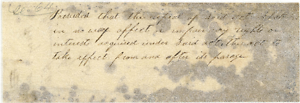 Provided that the repeal of said act shall
in no way affect or impair any rights or
interest acquired under said act this act to
take effect from and after its passage